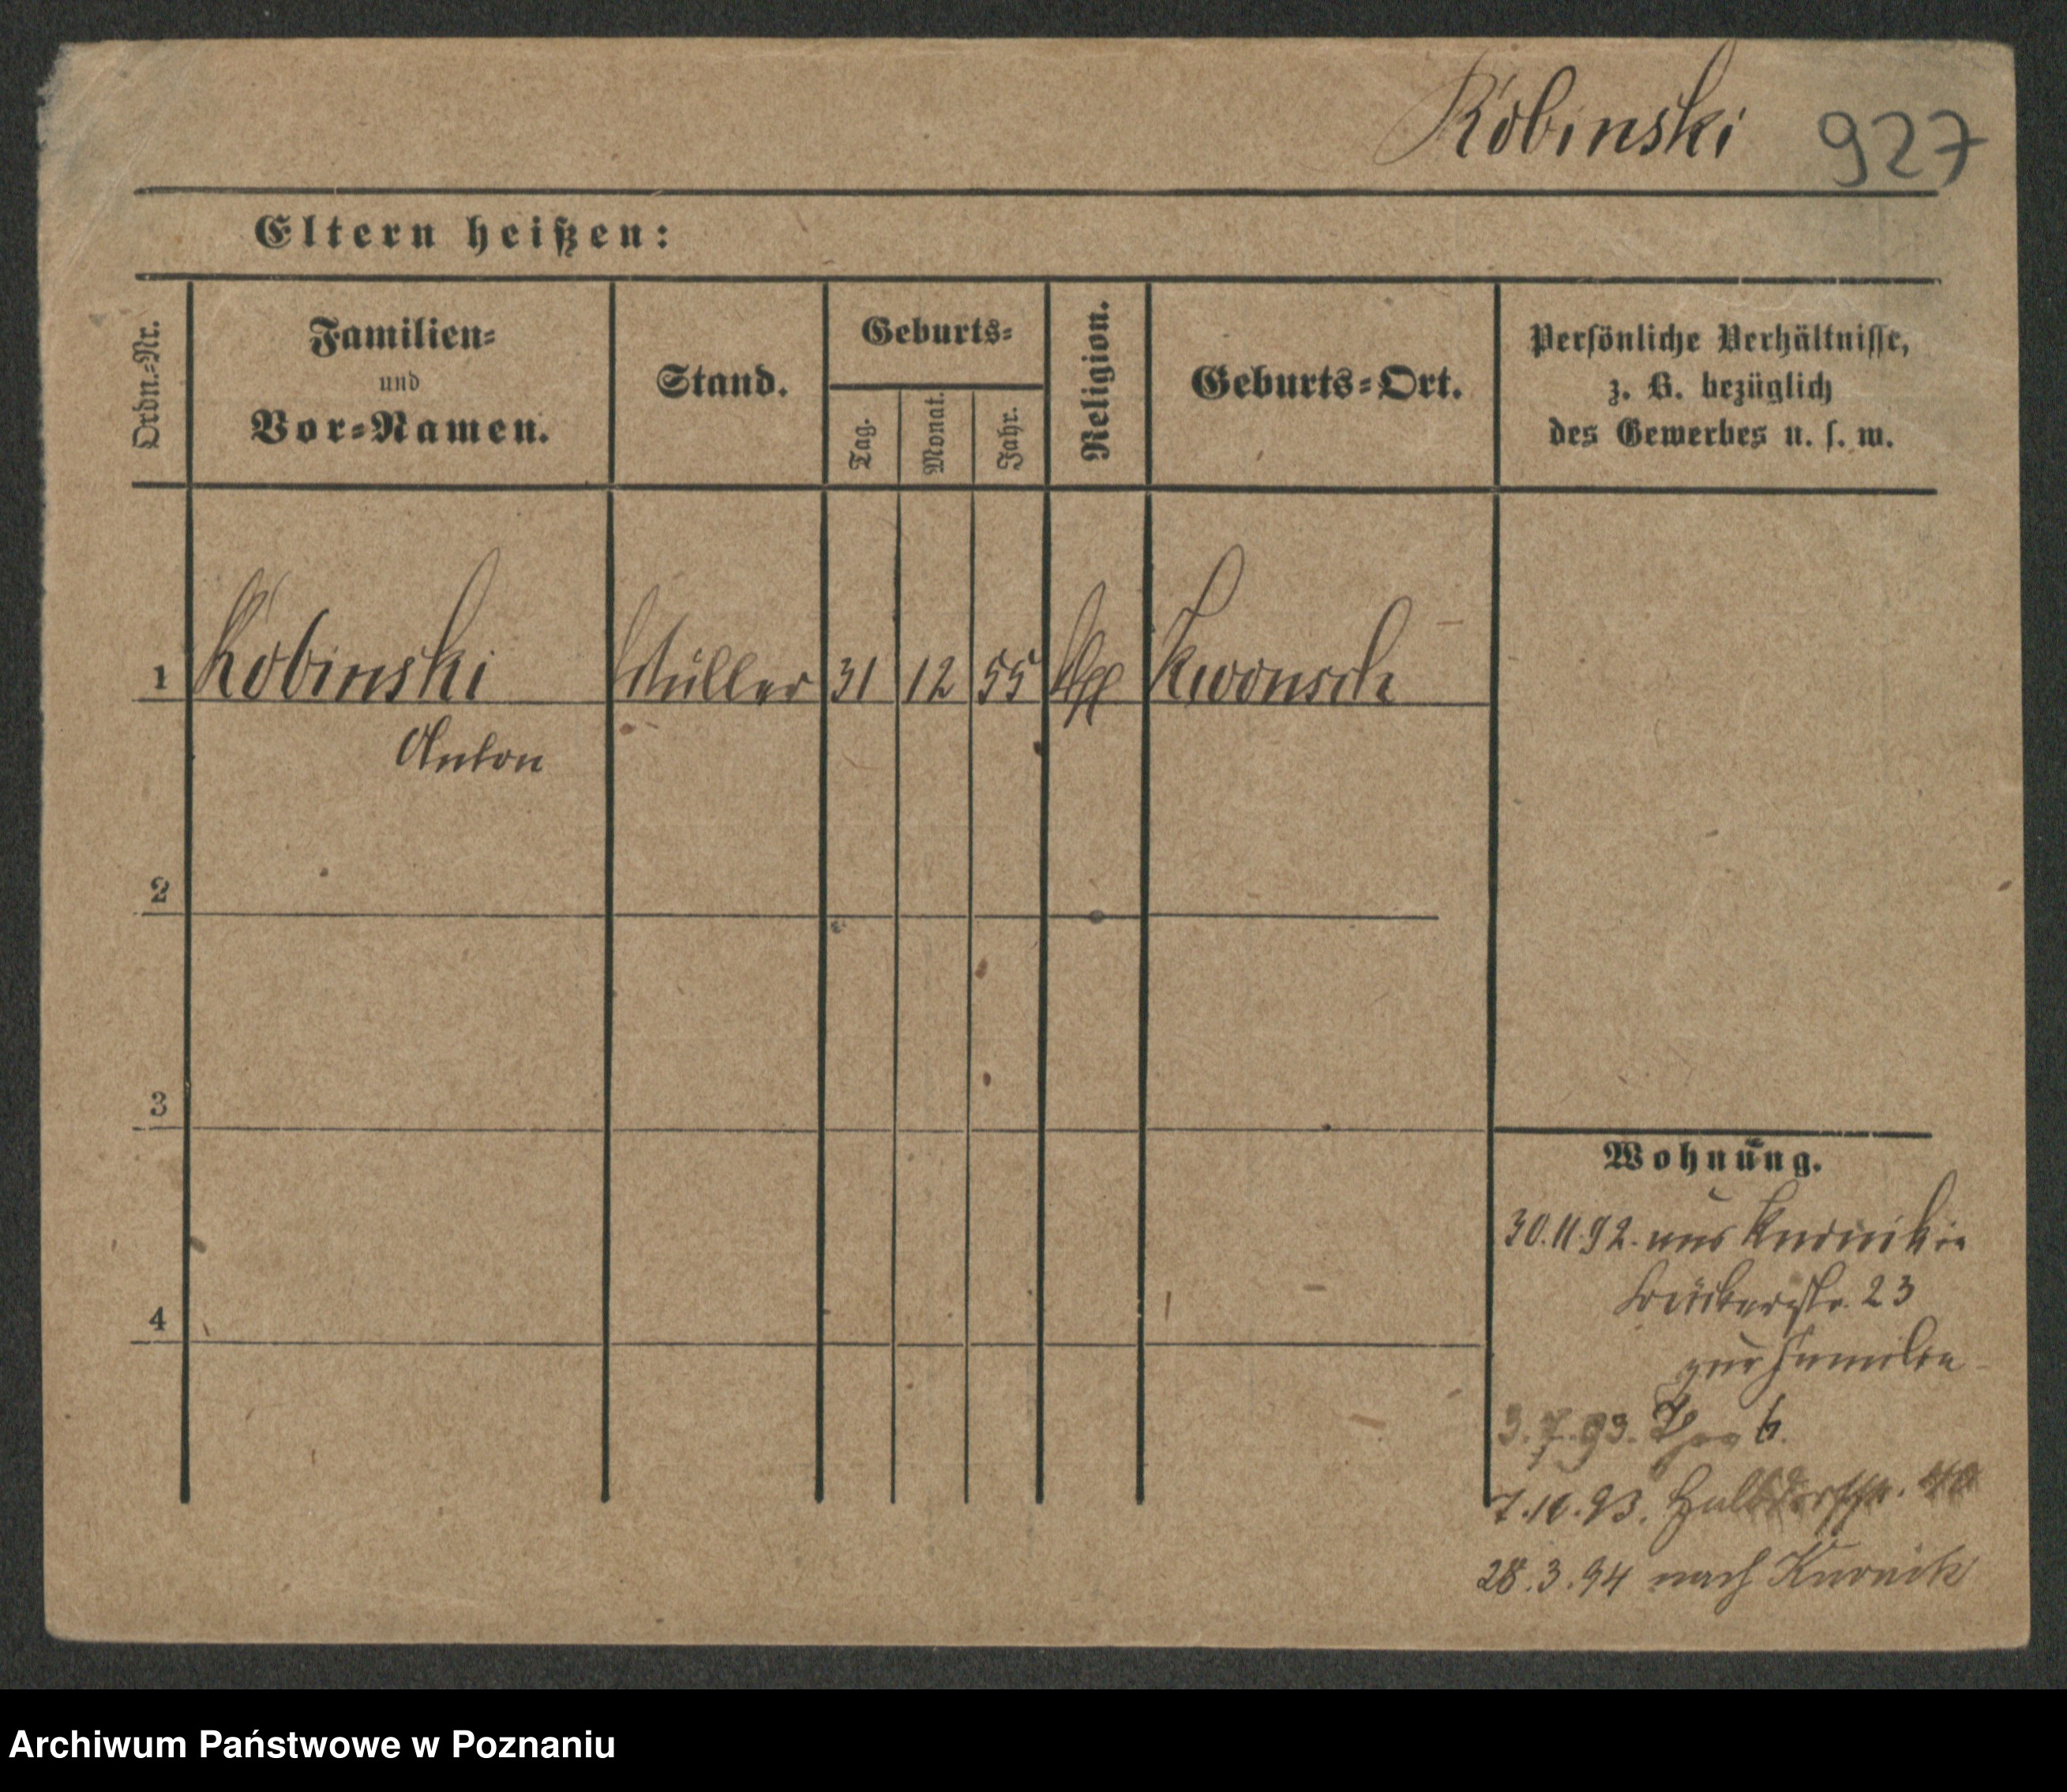 Robinski 927
Eltern heißen:
Ordn.-Nr.
Familien-
und
Vor-Namen.
Stand.
Geburts-
Tag.
Monat.
Jahr.
Religion.
Geburts-Ort.
Persönliche Verhältnisse,
z. B. bezüglich
des Gewerbes u. s. w.
1 Robinski Müller 31 12 55 Kwonsch
Anton
2
3
4
Wohnung.
30.11.92. aus Kurnik in
23
zur Familie
3.7.93. 6.
7.10.93. Halbdorfstr.
28.3.94 nach Kurnik
Archiwum Państwowe w Poznaniu